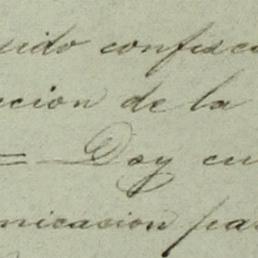 uido confisca
cion de la
= Doy cu
nicacion par